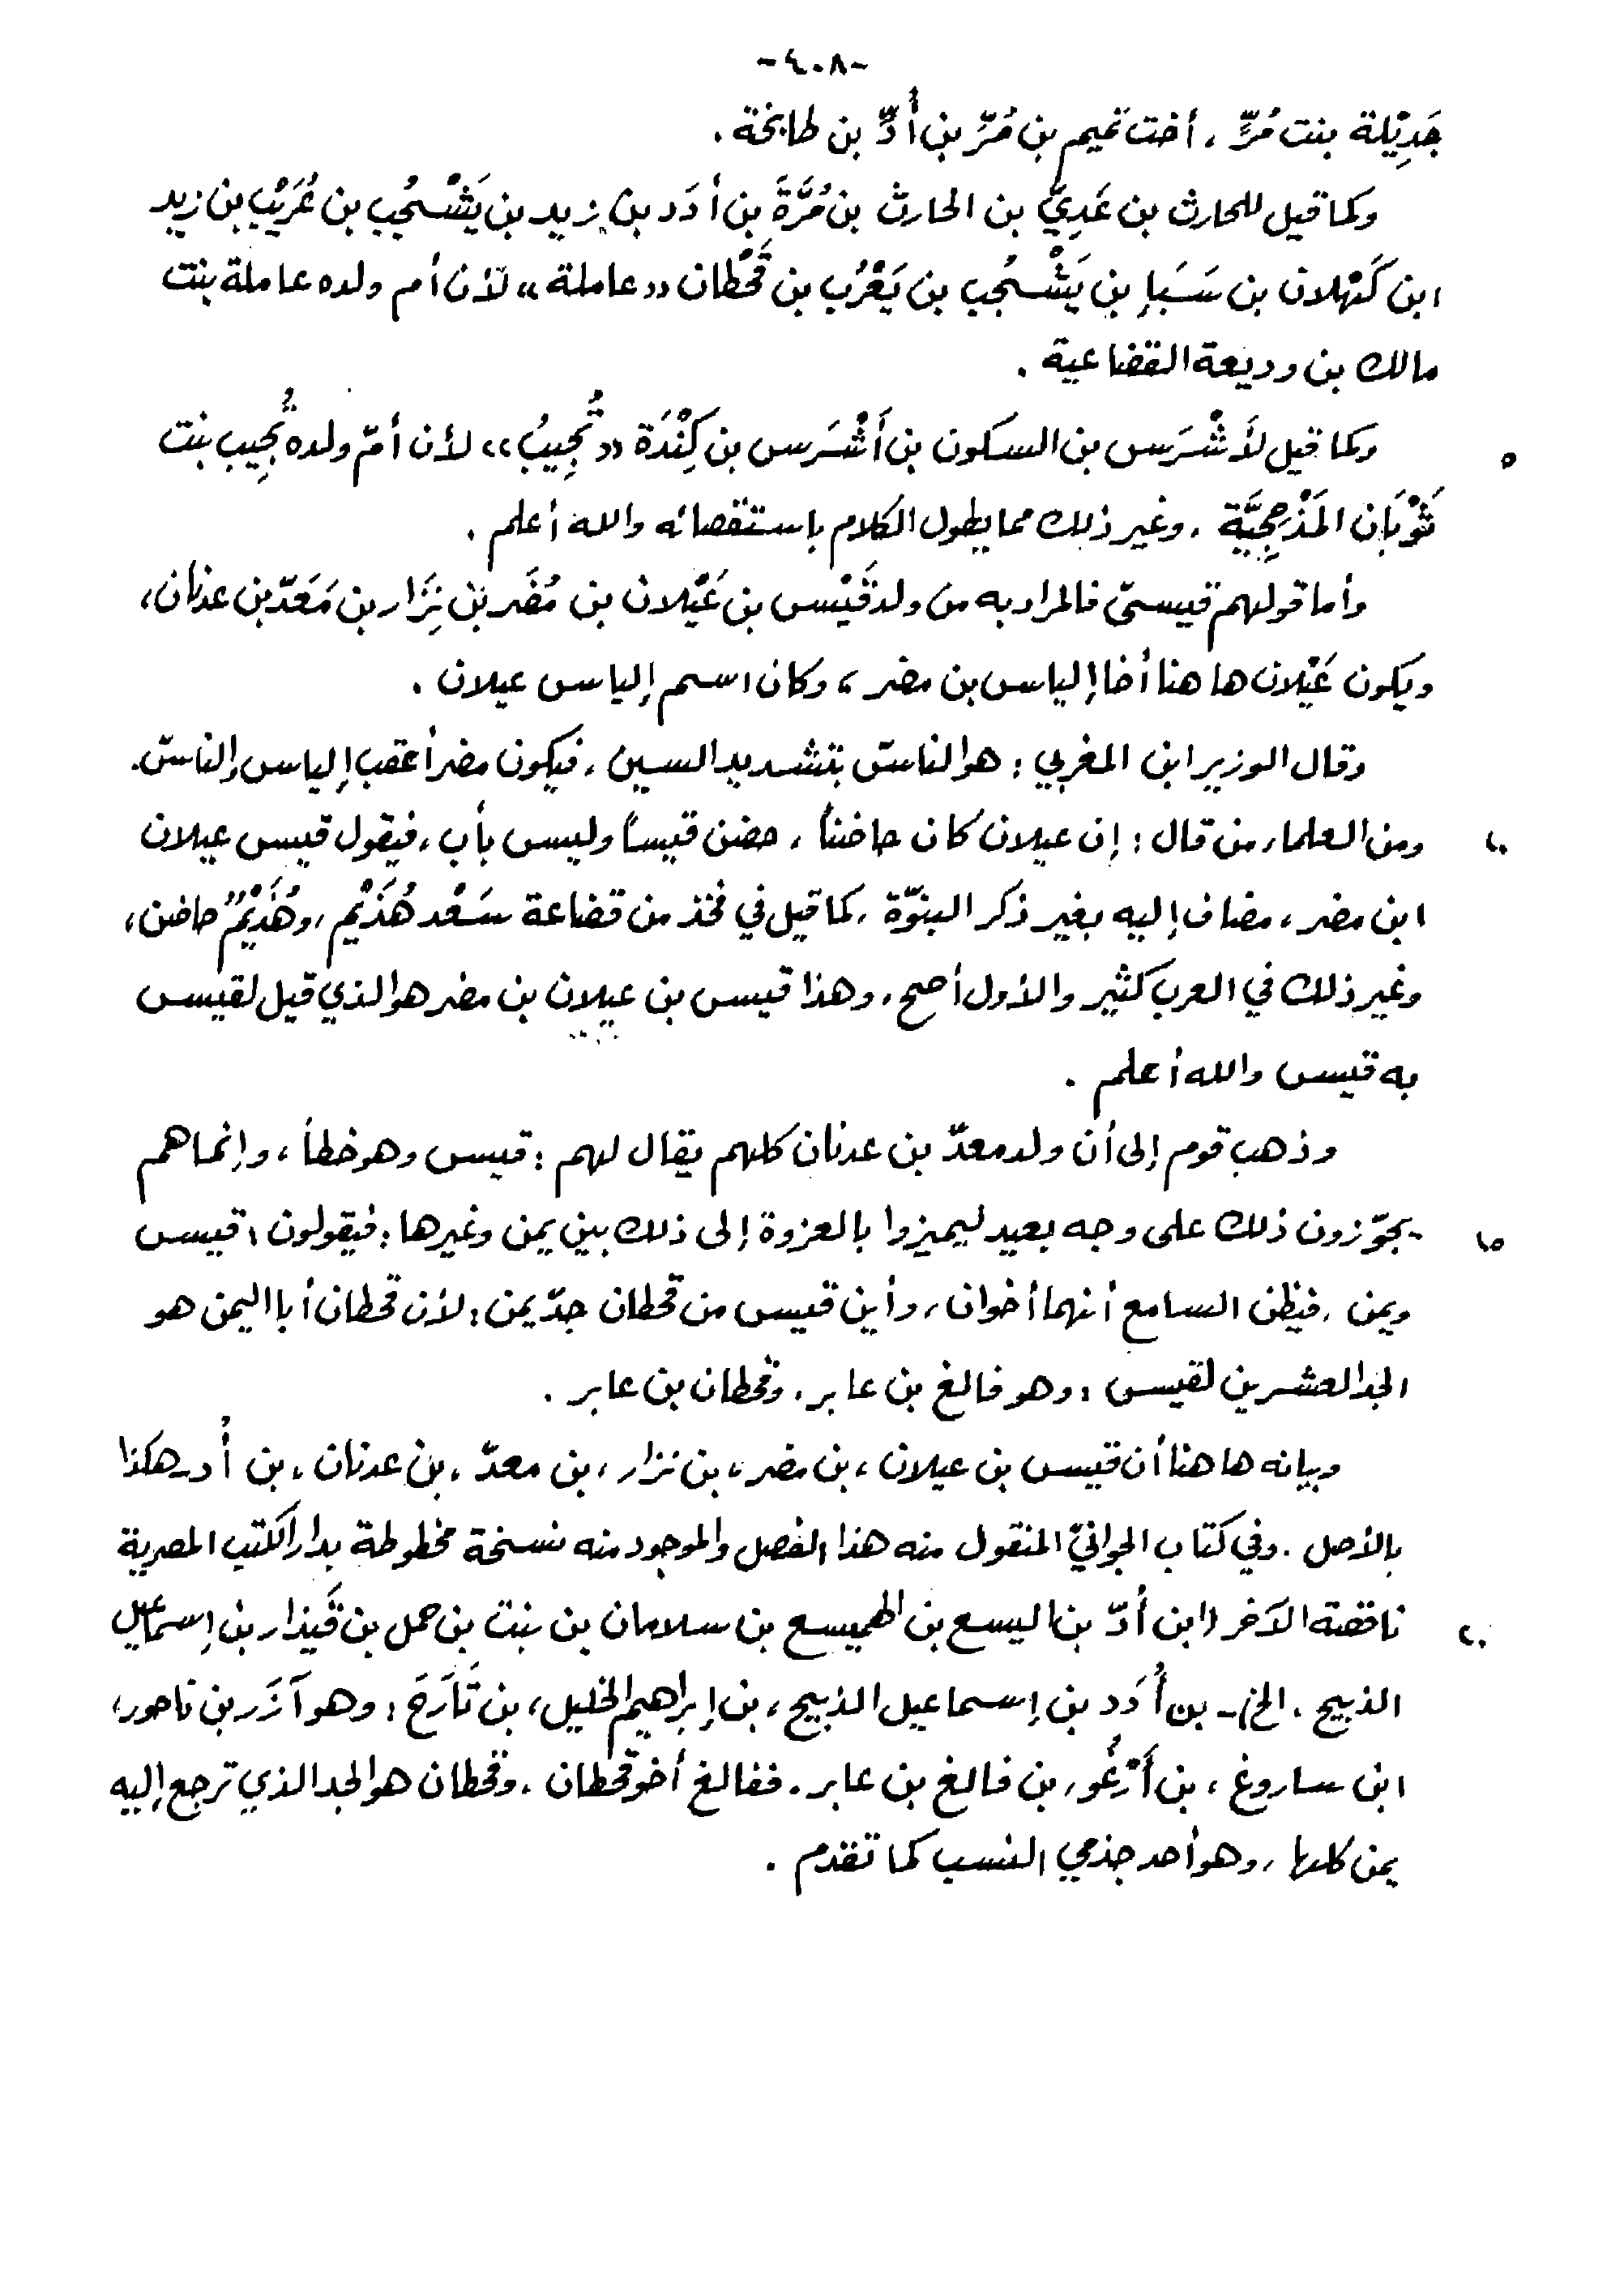 -٤٠٨-
جَدِيْلة بنت مُرٍّ، أخت تميم بن مُرّ بن أُدِّ بن طابخة.
وكما قيل للحارث بن عَدِيّ بن الحارث بن مُرَّةَ بن أدَد بن زيد بن يَشْجُب بن عُرَيْب بن زيد
ابن كَهْلان بن سَبَإ بن يَشْجُب بن يَعْرُب بن قَحْطان «عاملة» لأن أم ولده عاملة بنت
مالك بن وديعة القضاعية.
٥ وكما قيل لأَشْرَس بن السكون بن أَشْرَس بن كِنْدَة «تُجِيبُ» لأن أمّ ولده تُجِيب بنت
ثَوْبَان المَذْحِجِيَّة، وغير ذلك مما يطول الكلام باستقصائه والله أعلم.
وأما قولهم قيسيّ فالمراد به من ولد قَيْس بن عَيْلان بن مُضَر بن نِزَار بن مَعَدّ بن عدنان،
ويكون عَيْلان ها هنا أخا إلياس بن مضر، وكان اسم إلياس عيلان.
وقال الوزير ابن المغربي: هو الناسّ بتشديد السين، فيكون مضر أعقب إلياس والناسّ.
١٠ ومن العلماء من قال: إن عيلان كان حاضناً، حضن قيساً وليس بأب، فيقول قيس عيلان
ابن مضر، مضاف إليه بغير ذكر البنوّة، كما قيل في فخذ من قضاعة سَعْد هُذَيْم، وهُذَيْمٌ حاضن،
وغير ذلك في العرب كثير والأول أصح، وهذا قيس بن عيلان بن مضر هو الذي قيل لقيس
به قيس والله أعلم.
وذهب قوم إلى أن ولد معدّ بن عدنان كلهم يقال لهم: قيس وهو خطأ، وإنما هم
١٥ يجوّزون ذلك على وجه بعيد ليميزوا بالعزوة إلى ذلك بين يمن وغيرها: فيقولون: قيس
ويمن، فيظن السامع أنهما أخوان، وأين قيس من قحطان جدّ يمن: لأن قحطان أبا اليمن هو
الجد العشرين لقيس: وهو فالغ بن عابر، وقحطان بن عابر.
وبيانه ها هنا أن قيس بن عيلان، بن مضر، بن نزار، بن معدّ، بن عدنان، بن أُد - هكذا
بالأصل. وفي كتاب الجوانيّ المنقول منه هذا الفصل والموجود منه نسخة مخطوطة بدار الكتب المصرية
٢٠ ناقصة الآخر (ابن أدّ بن اليسع بن الهميسع بن سلامان بن نبت بن حمل بن قَيذار بن إسماعيل
الذبيح. الخ) - بن أُدَد بن إسماعيل الذبيح، بن إبراهيم الخليل، بن تَارَحَ: وهو آزَر بن ناحور،
ابن ساروغ، بن أَرْغُو، بن فالغ بن عابر. ففالغ أخو قحطان. وقحطان هو الجد الذي ترجع إليه
يمن كلها، وهو أحد جذمي النسب كما تقدم.